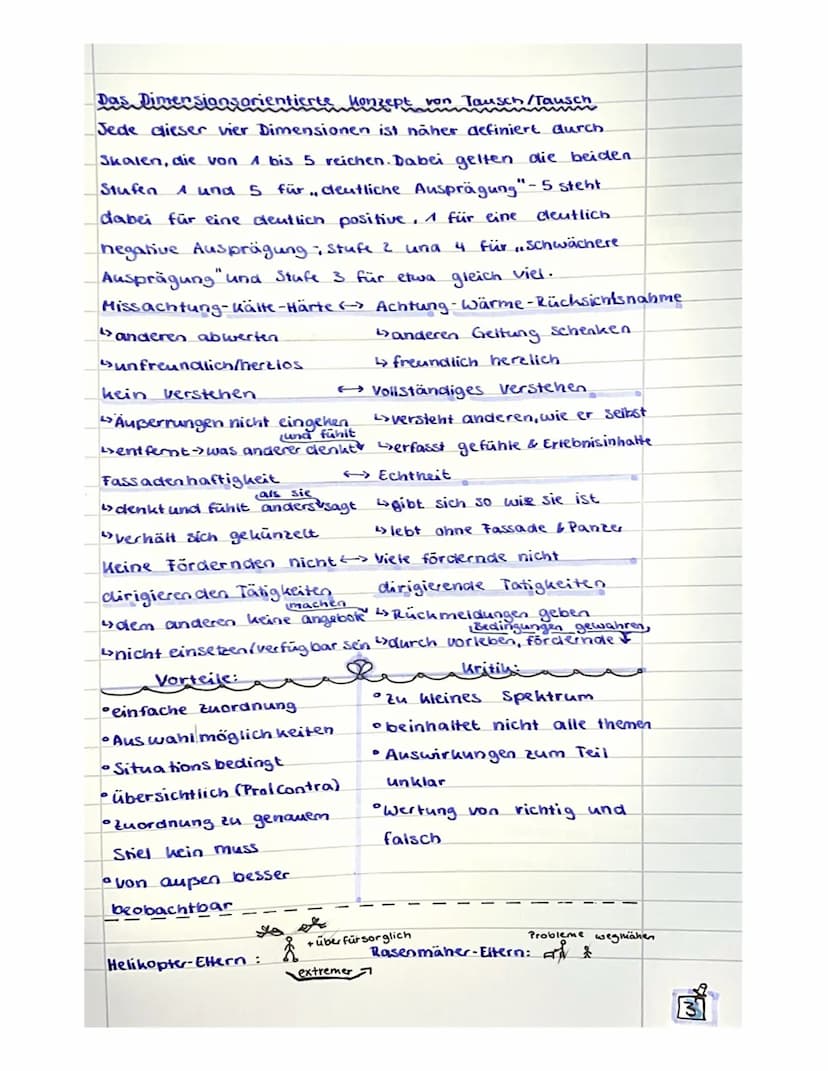 Das Dimensionsorientierte Konzept von Tausch/Tausch
Jede dieser vier Dimensionen ist näher definiert durch
Skalen, die von 1 bis 5 reichen. Dabei gelten die beiden
Stufen 1 und 5 für „deutliche Ausprägung" - 5 steht
dabei für eine deutlich positive, 1 für eine deutlich
negative Ausprägung; Stufe 2 und 4 für „schwächere
Ausprägung" und Stufe 3 für etwa gleich viel.
Missachtung-Kälte-Härte ↔ Achtung-Wärme-Rücksichtsnahme
↳ anderen abwerten ↳ anderen Geltung schenken
↳ unfreundlich/herzlos ↳ freundlich herzlich
kein verstehen ↔ Vollständiges verstehen
↳ Äußerrungen nicht eingehen ↳ versteht anderen, wie er selbst
und fühlt
↳ entfernt → was anderer denkt ↳ erfasst gefühle & Erlebnisinhalte
Fassadenhaftigkeit ↔ Echtheit
als sie
↳ denkt und fühlt anders sagt ↳ gibt sich so wie sie ist
↳ verhält sich gekünzelt ↳ lebt ohne Fassade & Panzer
Keine Fördernden nicht ↔ Viele fördernde nicht
dirigierenden Tätigkeiten dirigierende Tätigkeiten
machen
↳ dem anderen keine angebote ↳ Rückmeldungen geben
Bedingungen gewähren,
↳ nicht einsetzen/verfügbar sein ↳ durch vorleben, fördernde ↓
Vorteile: Kritik:
°einfache zuordnung °zu kleines Spektrum
°Auswahlmöglichkeiten °beinhaltet nicht alle themen
°Situationsbedingt °Auswirkungen zum Teil
°übersichtlich (Pro/Contra) unklar
°Zuordnung zu genauem °Wertung von richtig und
Stiel kein muss falsch
°von außen besser
beobachtbar
+überfürsorglich Probleme wegmähen
Helikopter-Eltern: Rasenmäher-Eltern:
extremer
3